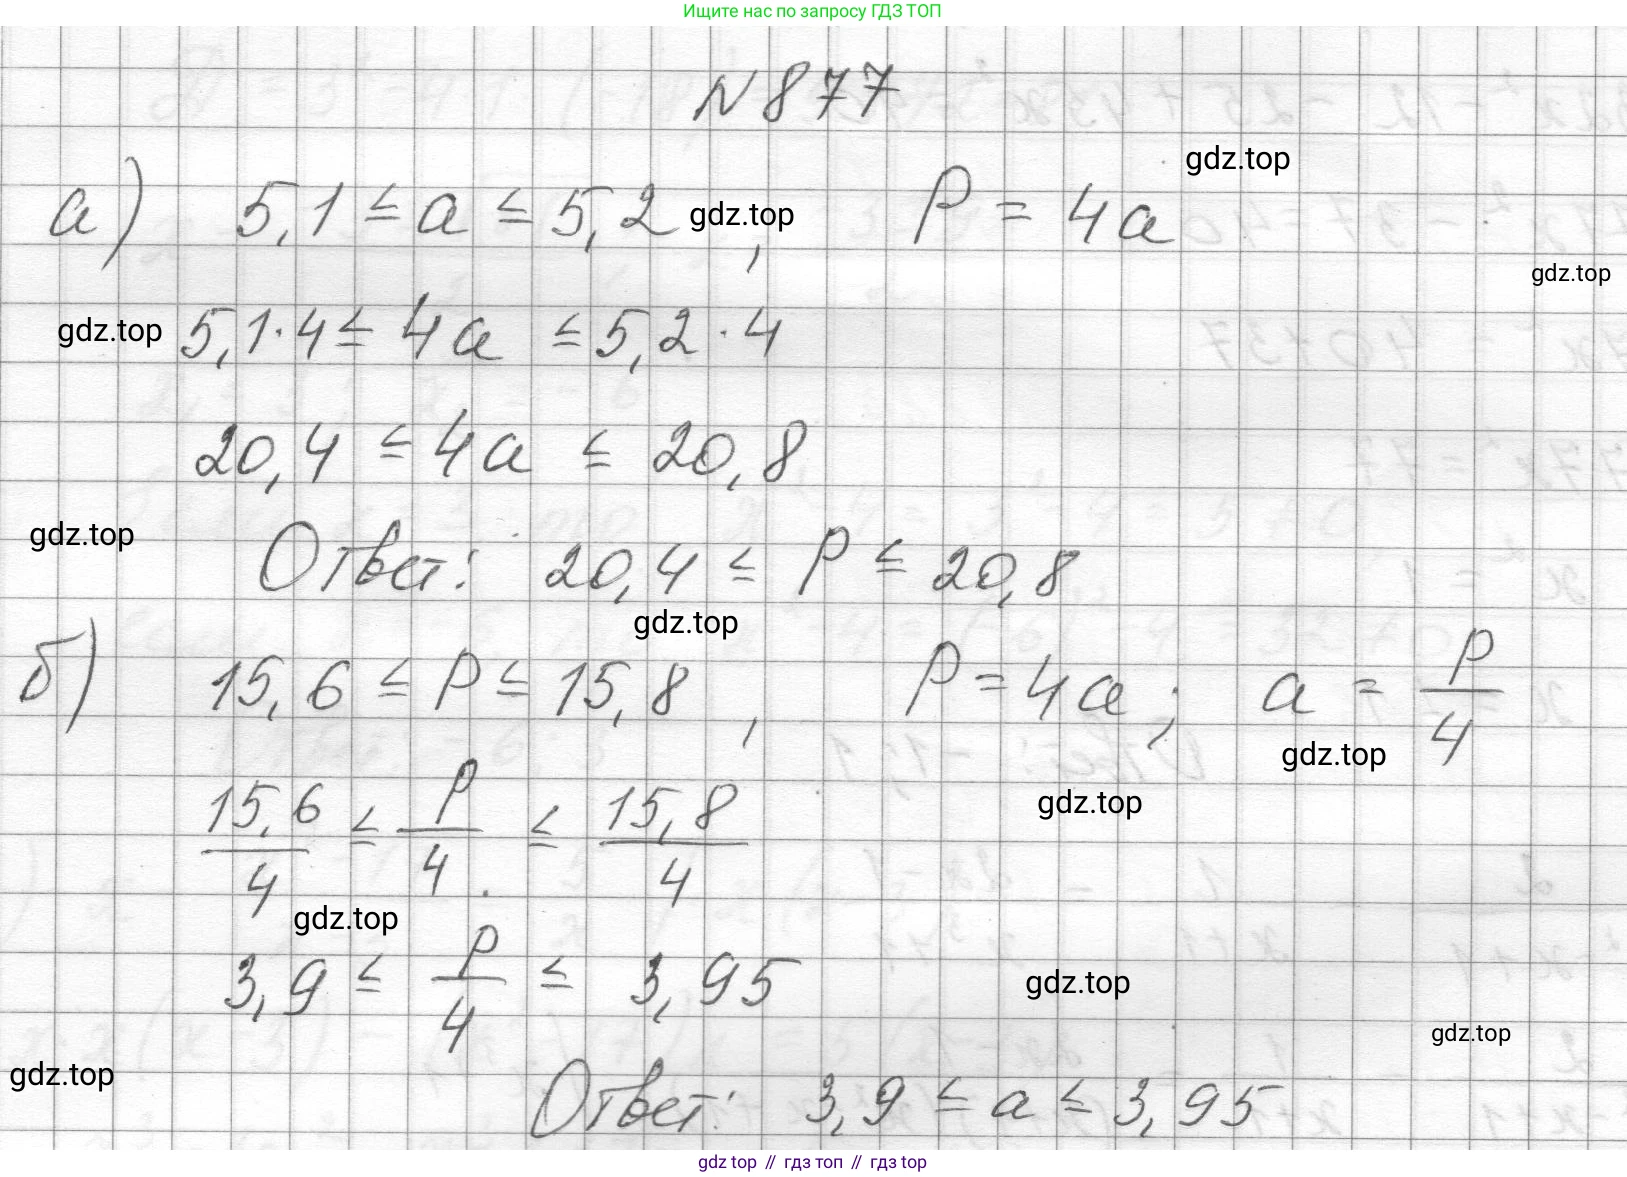 Ищите нас по запросу ГДЗ ТОП
N 877
gdz.top
а) 5,1 ≤ a ≤ 5,2 gdz.top , P = 4a
gdz.top
gdz.top 5,1·4 ≤ 4a ≤ 5,2·4
20,4 ≤ 4a ≤ 20,8
gdz.top
Ответ: 20,4 ≤ P ≤ 20,8
gdz.top
б) 15,6 ≤ P ≤ 15,8 , P = 4a ; a = P/4
gdz.top
gdz.top
15,6/4 ≤ P/4 ≤ 15,8/4
gdz.top
3,9 ≤ P/4 ≤ 3,95
gdz.top
gdz.top
gdz.top
Ответ: 3,9 ≤ a ≤ 3,95
gdz top // гдз топ // гдз top